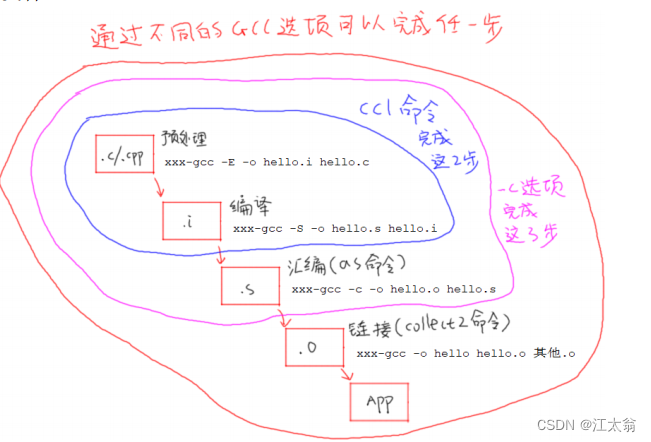 通过不同的GCC选项可以完成任一步
cc1命令
完成
这2步
.c/.cpp
预处理
xxx-gcc -E -o hello.i hello.c
-c选项
完成
这3步
.i
编译
xxx-gcc -S -o hello.s hello.i
.s
汇编(as命令)
xxx-gcc -c -o hello.o hello.s
.o
链接(collect2命令)
xxx-gcc -o hello hello.o 其他.o
APP
CSDN @江太翁